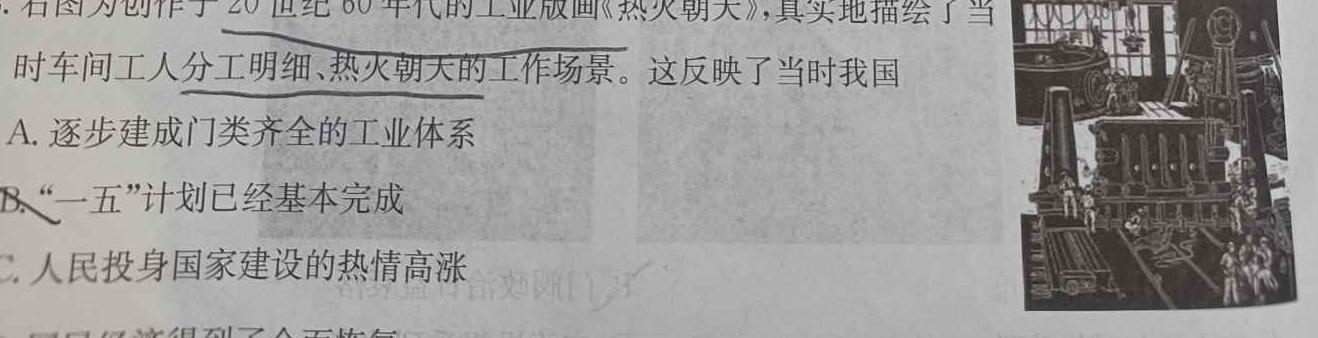 右图为创作于20世纪60年代的工业版画《热火朝天》,真实地描绘了当
时车间工人分工明细、热火朝天的工作场景。这反映了当时我国
A. 逐步建成门类齐全的工业体系
B. “一五”计划已经基本完成
C. 人民投身国家建设的热情高涨